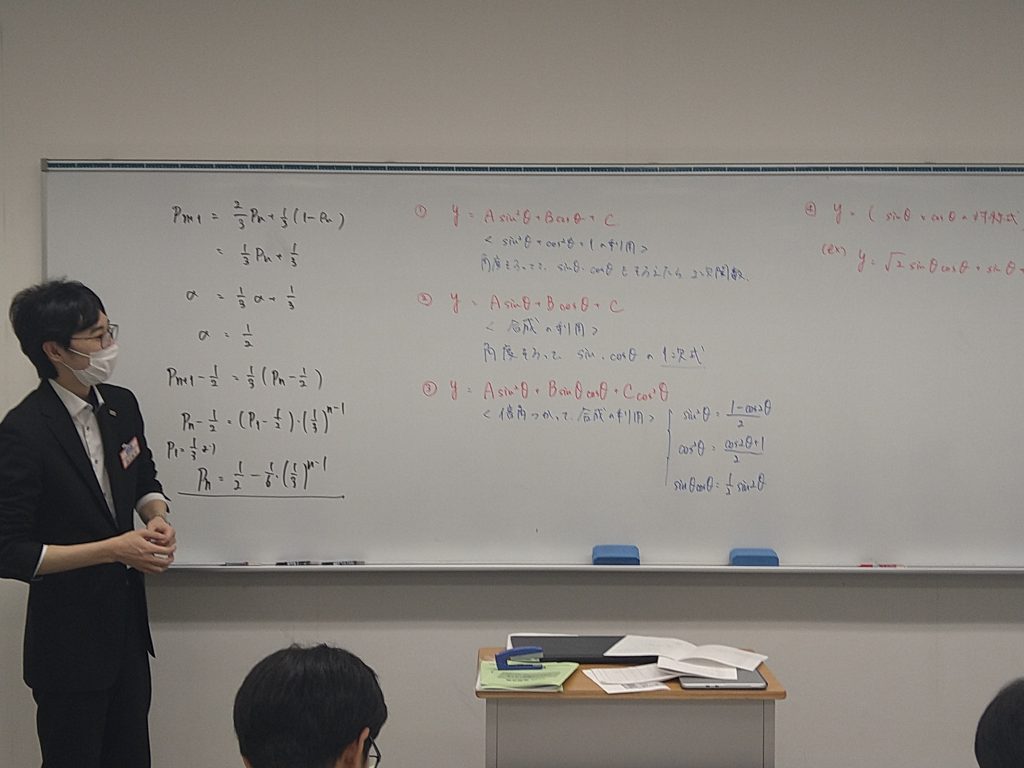 Pn+1 = 2/3 Pn + 1/3 (1 - Pn)
= 1/3 Pn + 1/3
α = 1/3 α + 1/3
α = 1/2
Pn+1 - 1/2 = 1/3 (Pn - 1/2)
Pn - 1/2 = (P1 - 1/2)・(1/3)^n-1
P1 = 1/3 より
Pn = 1/2 - 1/6・(1/3)^n-1
① y = A sin²θ + B cosθ + C
< sin²θ + cos²θ = 1 の利用 >
角度そろってて、sinθ、cosθ をそろえたら 2次関数
② y = A sinθ + B cosθ + C
< 合成の利用 >
角度そろって sin、cosθ の 1次式
③ y = A sin²θ + B sinθcosθ + C cos²θ
< 倍角つかって、合成の利用 >
sin²θ = 1-cos2θ/2
cos²θ = cos2θ+1/2
sinθcosθ = 1/2 sin2θ
④ y = ( sinθ と cosθ の対称式
(ex) y = √2 sinθcosθ + sinθ +